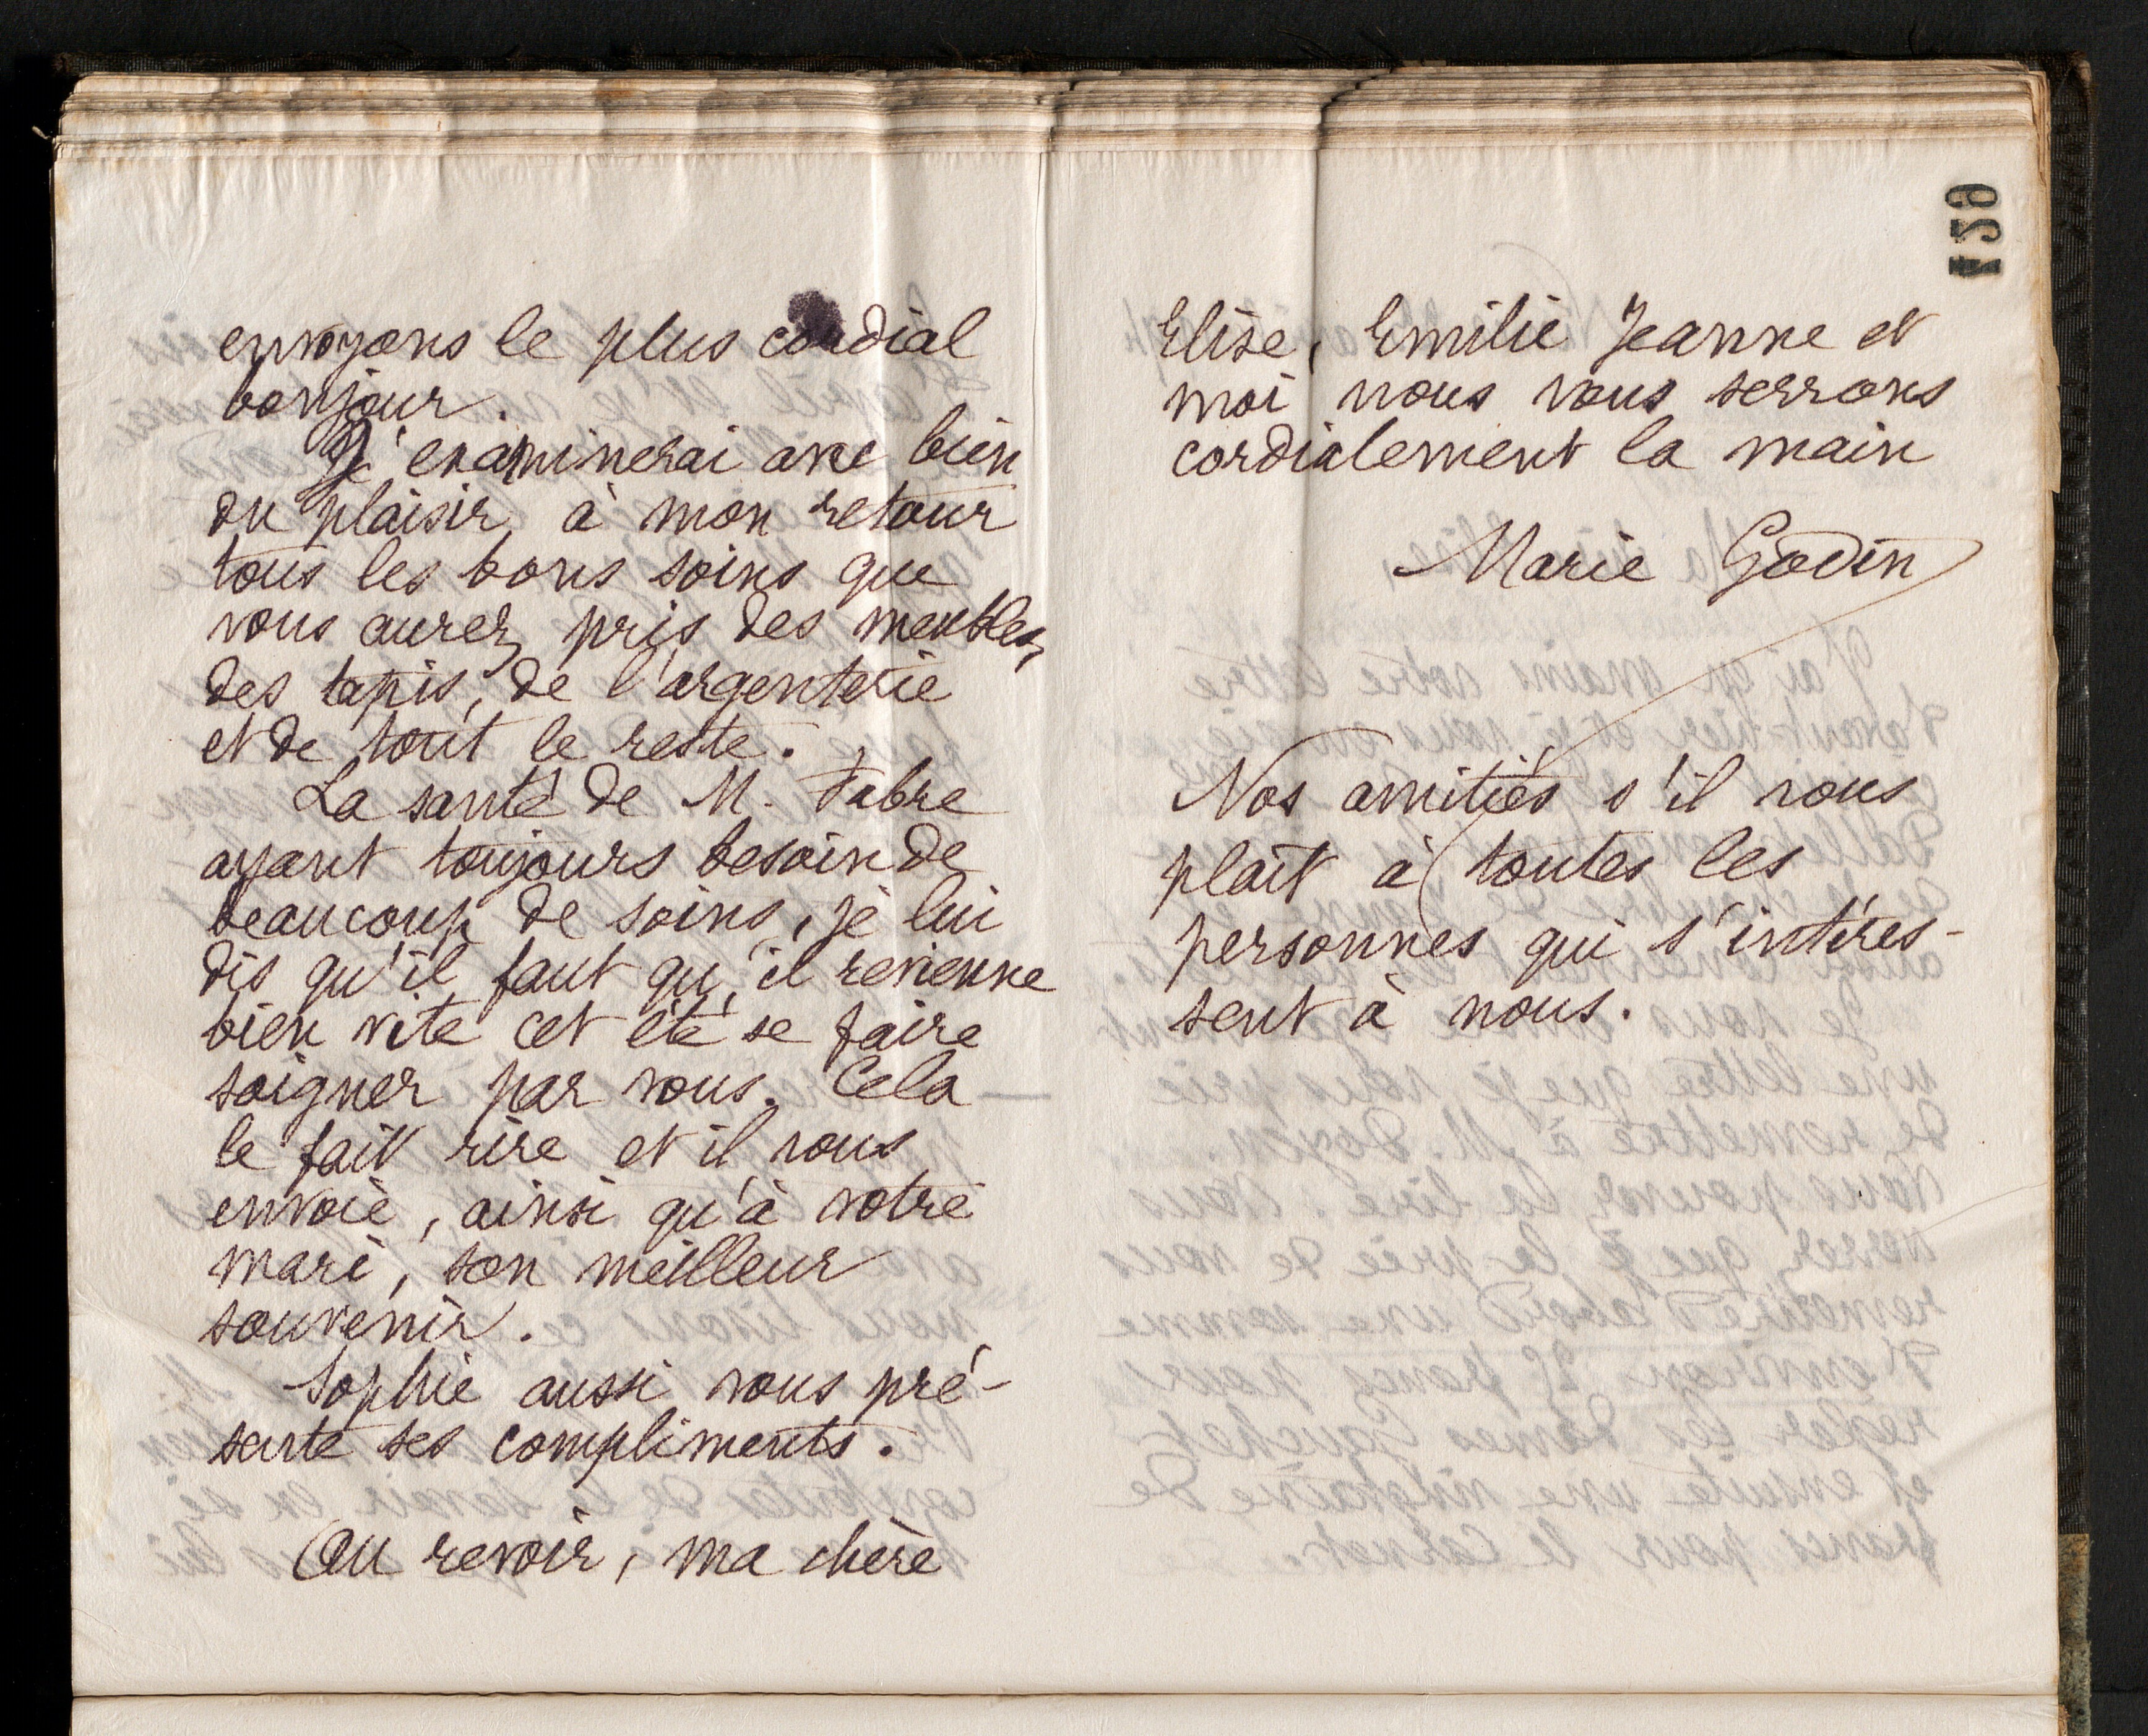 envoyons le plus cordial
bonjour.
J'examinerai avec bien
du plaisir, à mon retour
tous les bons soins que
vous aurez pris des meubles,
des tapis, de l'argenterie
et de tout le reste.
La santé de M. Fabre
ayant toujours besoin de
beaucoup de soins, je lui
dis qu'il faut qu'il revienne
bien vite cet été se faire
soigner par vous. Cela
le fait rire et il vous
envoie, ainsi qu'à votre
mari, son meilleur
souvenir.
Sophie aussi vous pré-
sente ses compliments.
Au revoir, ma chère
159
Elise, Emilie Jeanne et
moi nous vous serrons
cordialement la main
Marie Godin
Nos amitiés s'il vous
plaît à toutes les
personnes qui s'intéres-
sent à nous.